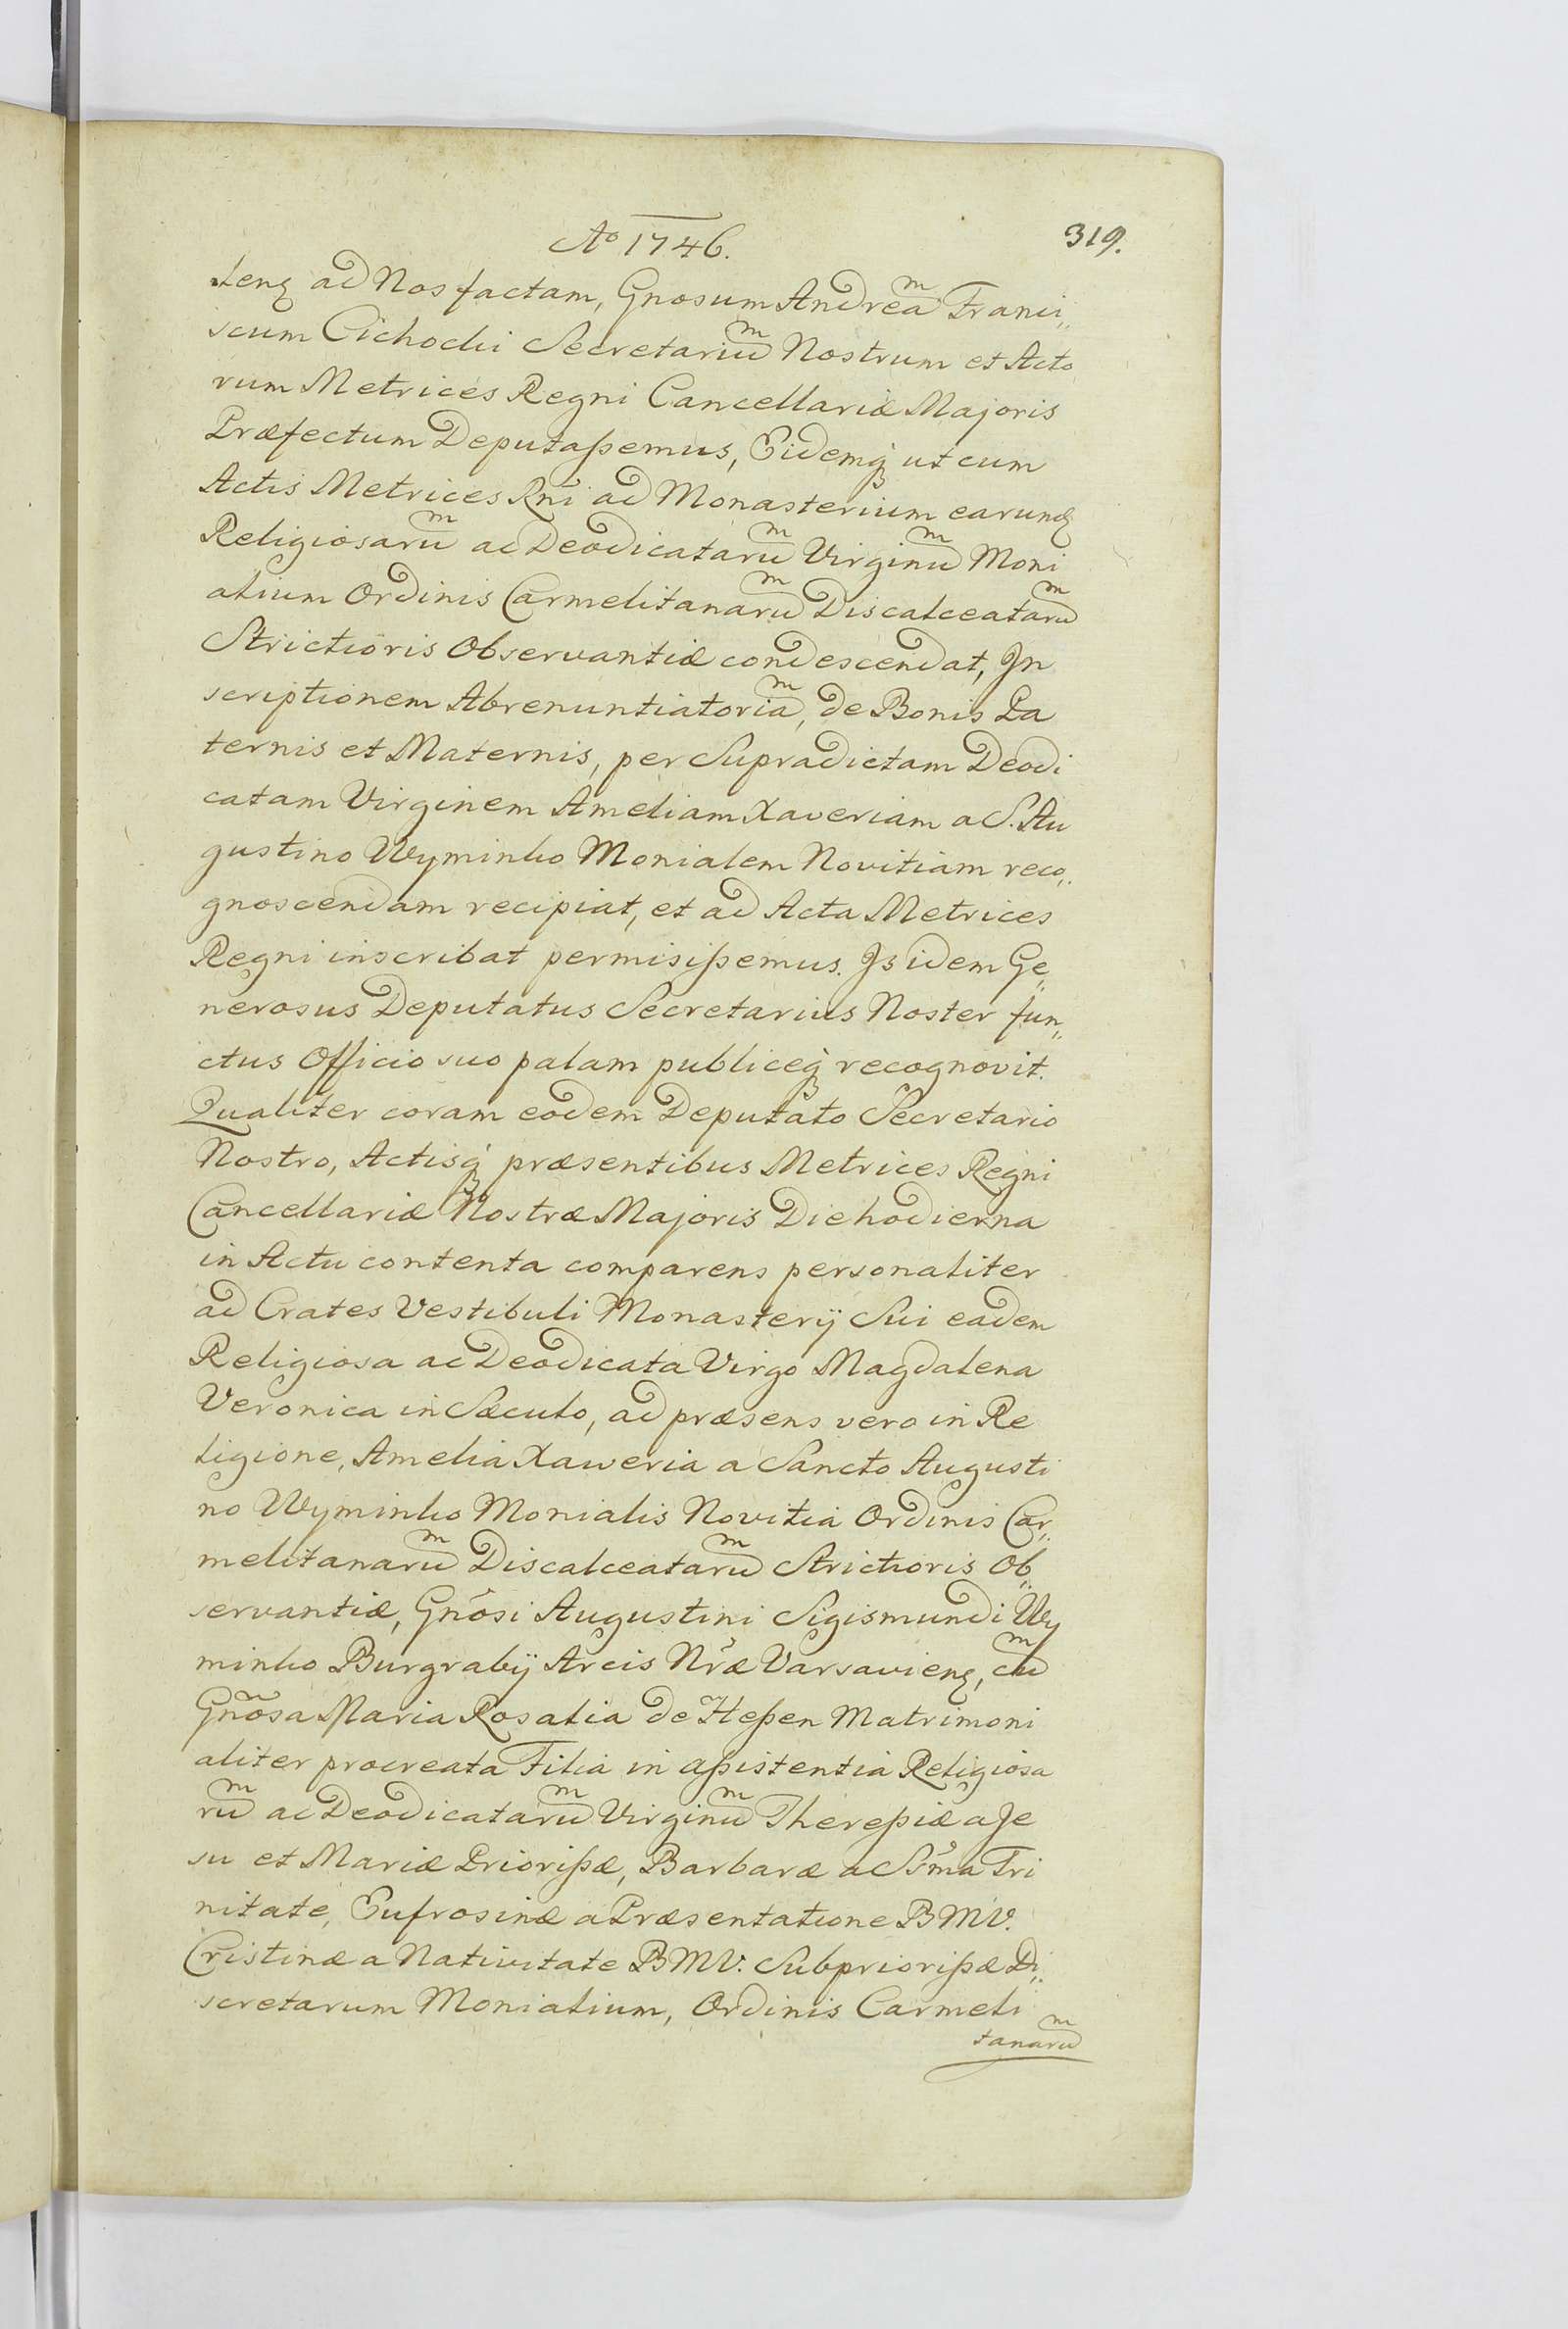 Ao 1746.
319.
tenq ad Nos factam, Gnosum Andream Franci„
scum Cichocki Secretarium Nostrum et Acto
rum Metrices Regni Cancellariæ Majoris
Præfectum Deputaßemus, Eidemq ut cum
Actis Metrices Rni ad Monasterium earunq
Religiosarum ac Deodicatarum Virginum Moni
alium Ordinis Carmelitanarum Discalceatarum
Strictioris Observantiæ condescendat, In
scriptionem Abrenuntiatoriam, de Bonis Pa
ternis et Maternis, per Supradictam Deodi
catam Virginem Ameliam Xaveriam a S. Au
gustino Wyminko Monialem Novitiam reco„
gnoscendam recipiat, et ad Acta Metrices
Regni inscribat permisißemus. Is idem Ge„
nerosus Deputatus Secretarius Noster fun„
ctus Officio suo palam publiceq recognovit.
Qualiter coram eodem Deputato Secretario
Nostro, Actisq præsentibus Metrices Regni
Cancellariæ Nostræ Majoris Die hodierna
in Actu contenta comparens personaliter
ad Crates Vestibuli Monasterÿ Sui eadem
Religiosa ac Deodicata Virgo Magdalena
Veronica in Sæculo, ad præsens vero in Re
ligione, Amelia Xaweria a Sancto Augusti
no Wyminko Monialis Novitia Ordinis Car„
melitanarum Discalceatarum Strictioris Ob„
servantiæ, Gnõsi Augustini Sigismundi Wy
minko Burgrabÿ Arcis Nræ Varsavienq, cum
Gnõsa Maria Rosalia de Heßen Matrimoni
aliter procreata Filia in aßistentia Religiosa
rum ac Deodicatarum Virginum Thereßiæ a Je
su et Mariæ Priorißæ, Barbaræ a SSma Tri
nitate, Eufrosinæ a Præsentatione BMV.
Cristinæ a Nativitate BMV. Subpriorißæ Di„
scretarum Monialium, Ordinis Carmeli
tanarum